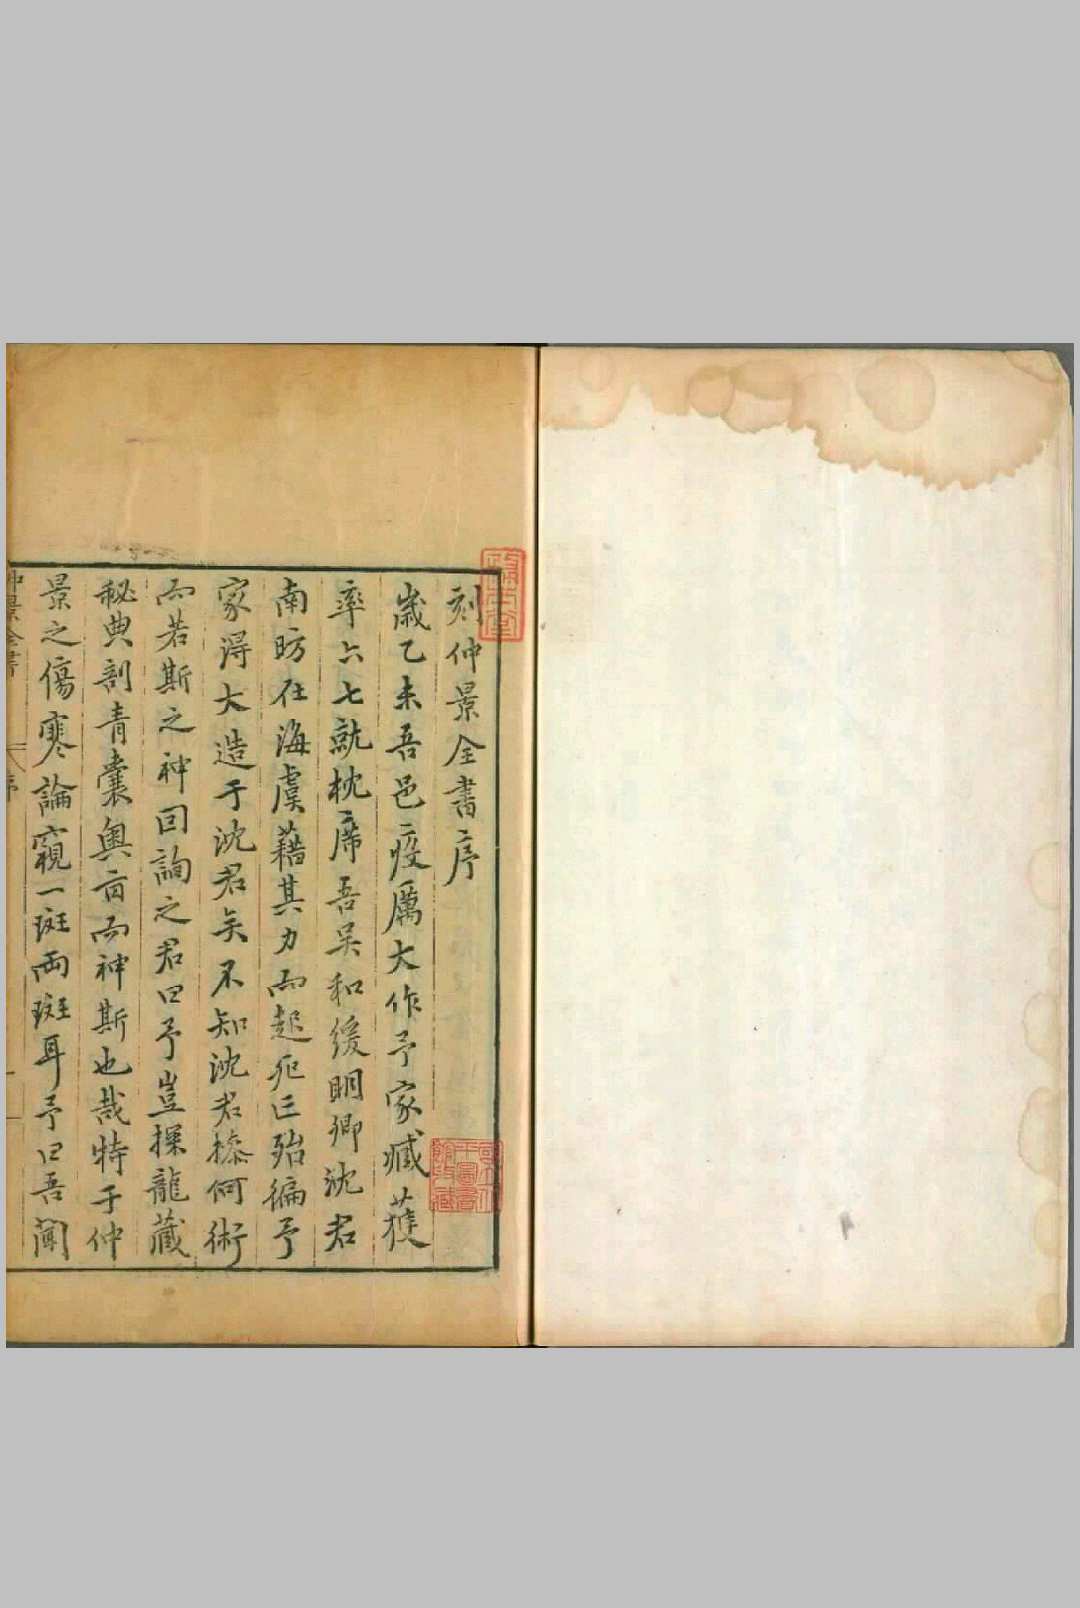 刻仲景全書序
歲乙未吾邑疫厲大作予家臧獲
率六七就枕席吾吳和緩明卿沈君
南昉在海虞藉其力而起死亡殆徧予
家淂大造于沈君矣不知沈君操何術
而若斯之神囙詢之君曰予豈探龍藏
秘典剖青囊奥旨而神斯也哉特于仲
景之傷寒論窺一斑兩斑耳予曰吾聞
仲景全書
序